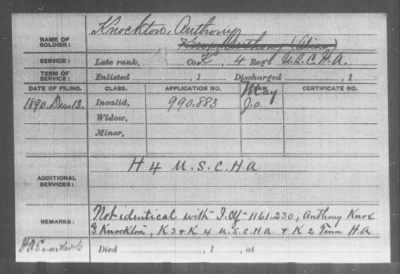 Knockton, Anthony
NAME OF SOLDIER: Knox, Anthony (Alias)
SERVICE: Late rank, Co. K, 4 Reg't U.S.C.H.A.
TERM OF SERVICE: Enlisted , 1 Discharged , 1
DATE OF FILING. CLASS. APPLICATION NO. CERTIFICATE NO.
1890. Dec. 13. Invalid, 990.883
Widow,
Minor,
ADDITIONAL SERVICES: H 4 U.S.C.H.A
REMARKS: Not identical with I.O/- 1161.230, Anthony Knox
Knockton, K 3 & K 4 U.S.C.H.A & K 2 Tenn H.A
Died , 1 , at